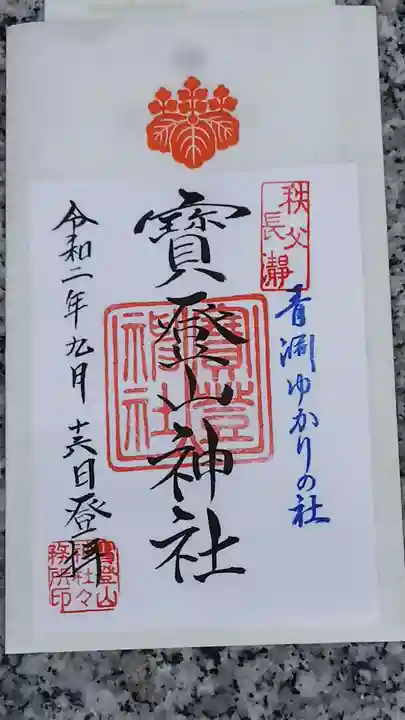 秩父
長瀞
青淵ゆかりの社
寳登山神社
寳登山神社
令和二年九月十六日登拝
寳登山
神社々
務所印